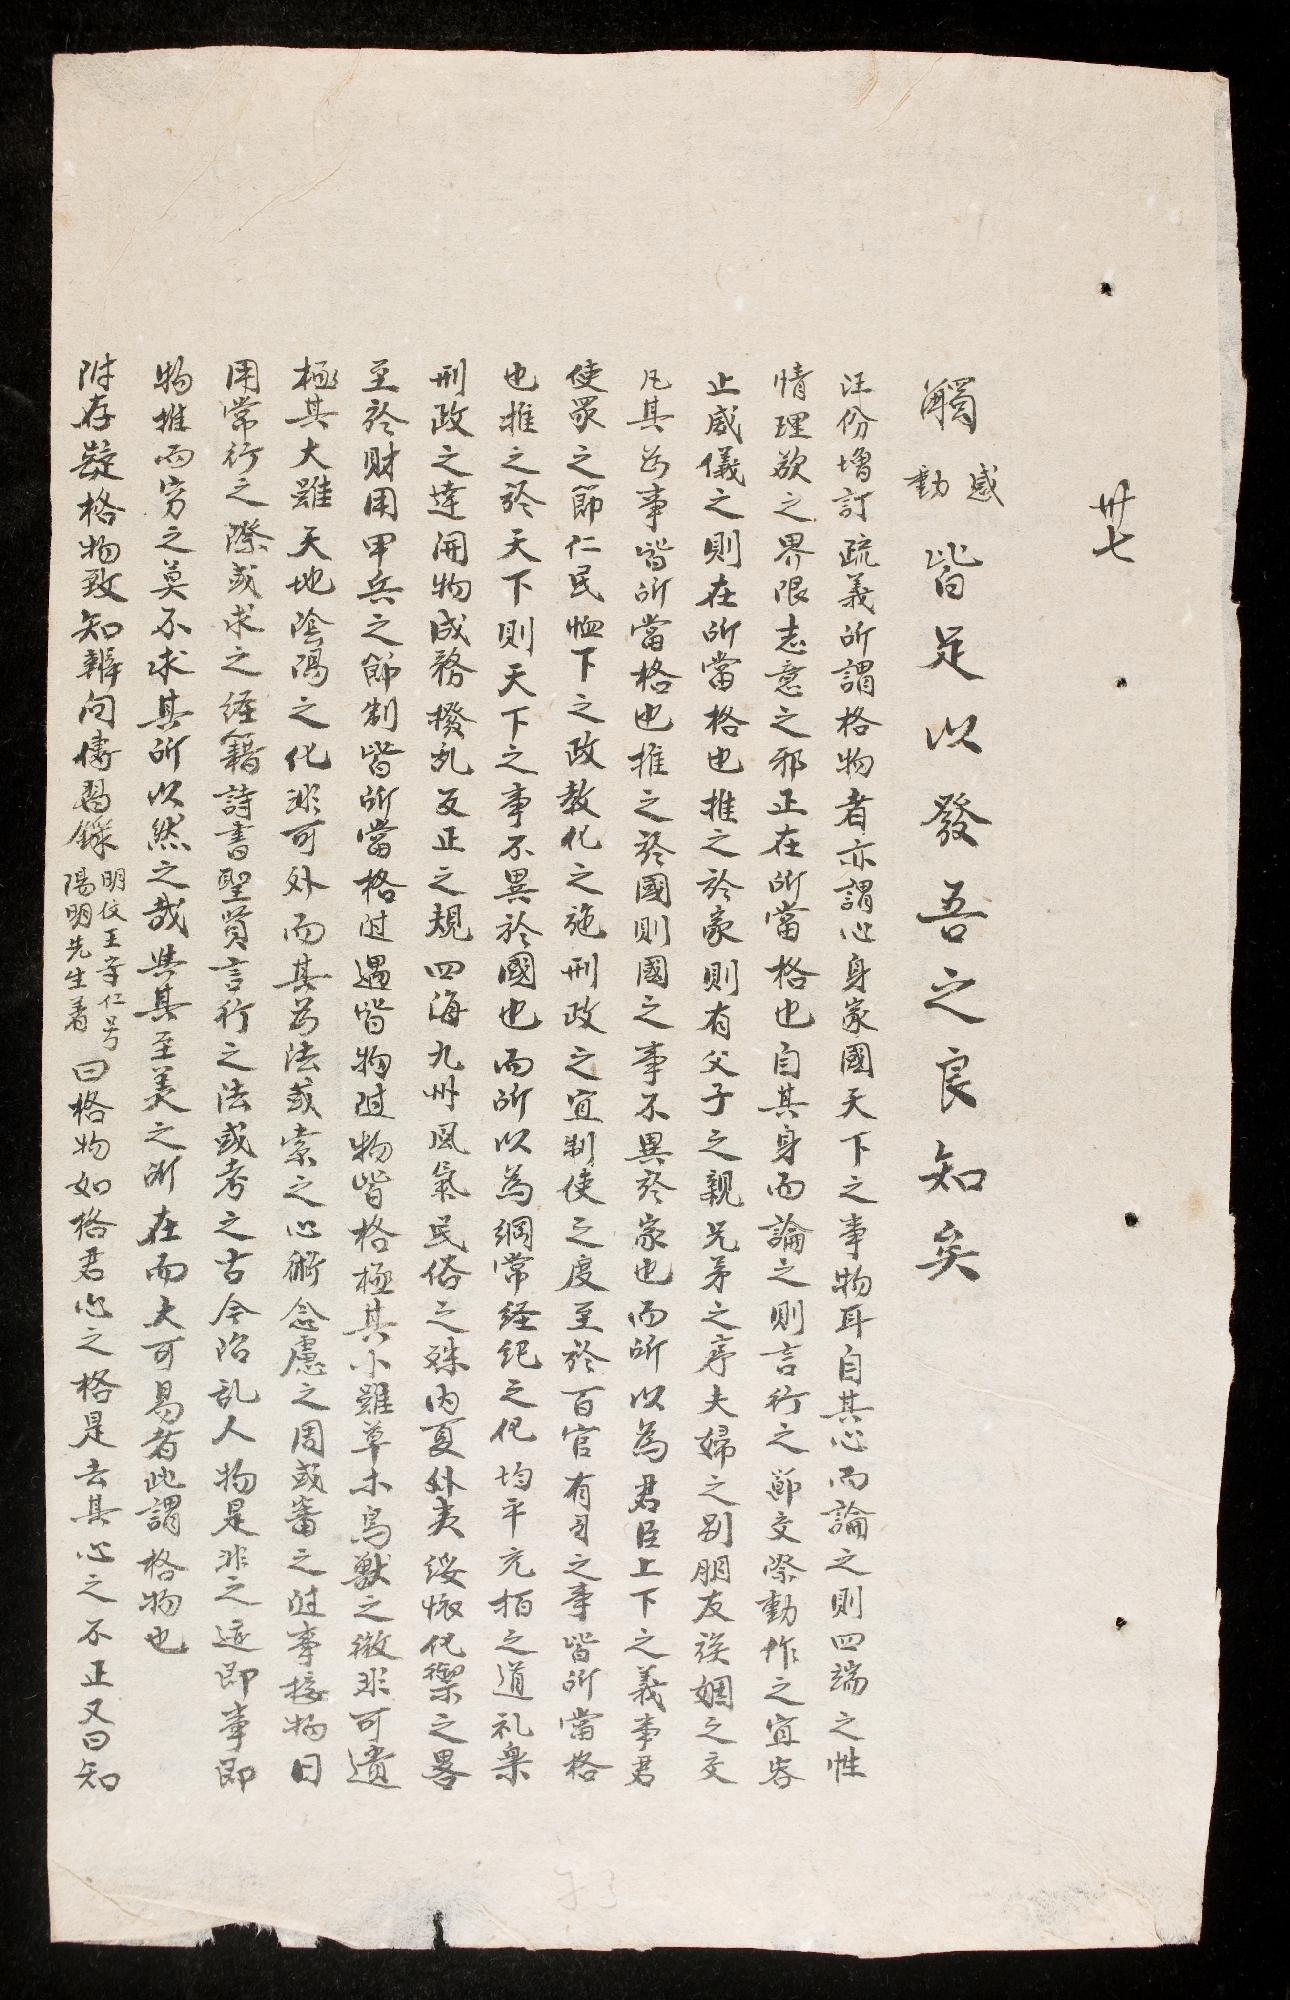 卅七
觸感動皆足以發吾之良知矣
汪份增訂疏義所謂格物者亦謂心身家國天下之事物耳自其心而論之則四端之性
情理欲之界限志意之邪正在所當格也自其身而論之則言行之節交際動作之宜容
止威儀之則在所當格也推之於家則有父子之親兄弟之序夫婦之別朋友族姻之交
凡其為事皆所當格也推之於國則國之事不異於家也而所以為君臣上下之義事君
使眾之節仁民恤下之政教化之施刑政之宜制使之度至於百官有司之事皆所當格
也推之於天下則天下之事不異於國也而所以為綱常経紀之化均平充拓之道礼樂
刑政之達開物成務撥乱反正之規四海九州風氣民俗之殊內夏外夷綏懷化禦之畧
至於財用甲兵之節制皆所當格随遇皆物随物皆格極其小雖草木鳥獸之微非可遺
極其大雖天地陰陽之化非可外而其為法或索之心術念慮之周或審之随事接物日
用常行之際或求之経籍詩書聖賢言行之法或考之古今治乱人物是非之迹即事即
物推而穷之莫不求其所以然之哉與其至美之所在而大可易者此謂格物也
附存疑格物致知辨問傳習錄明儒王守仁号陽明先生着曰格物如格君心之格是去其心之不正又曰知